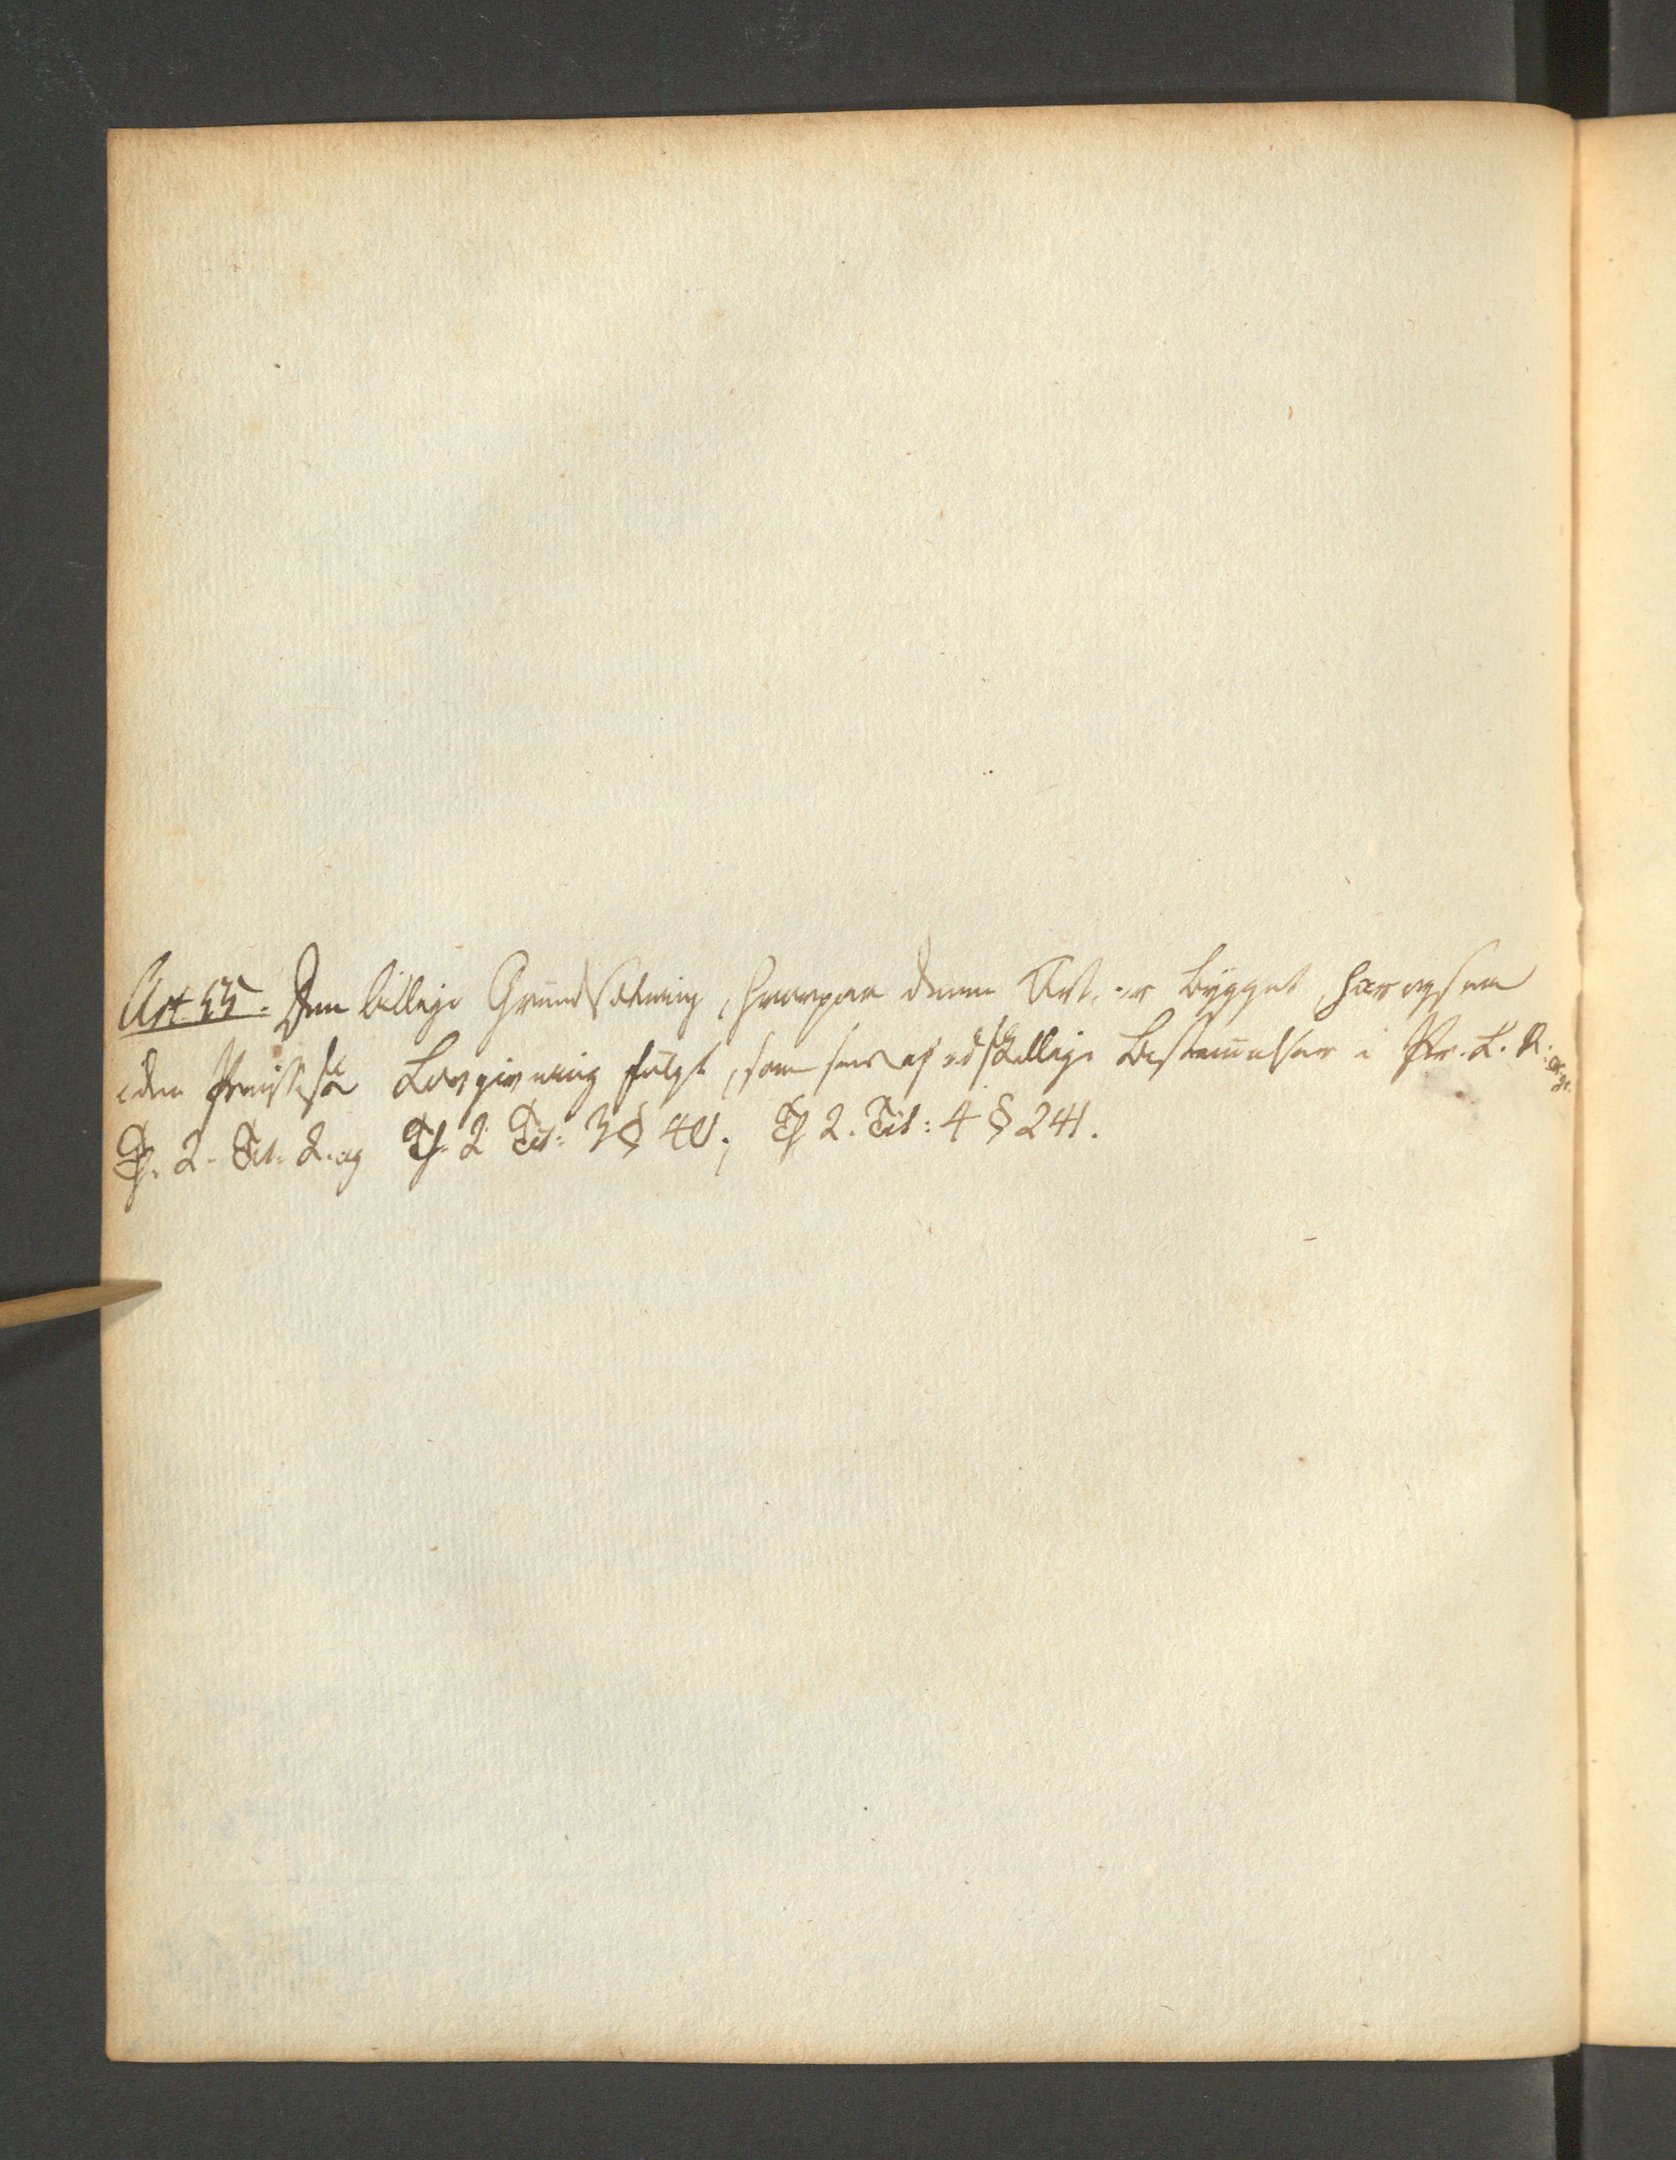 Art 55. Den billige Grundsætning, hvorpaa denne Art. er bygget, har ogsaa
i den Preussiske Lovgivning fulgt, som sees af adskillige Bestemmelser i Pr. L. R.
Th. 2. Tit. 2. og Th. 2 Tit: 3 § 40; Th 2. Tit: 4 § 241.